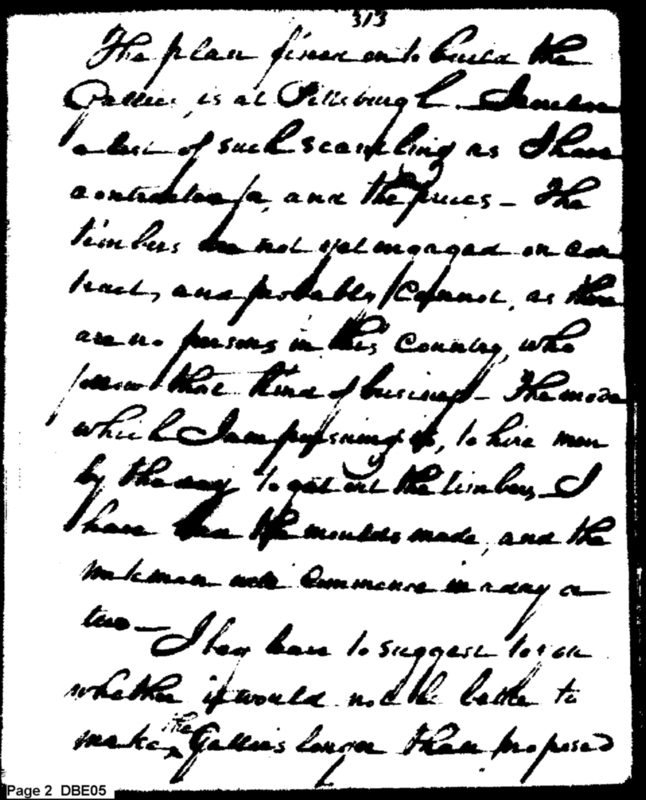 313
The plan fixed on to build the
Gallies, is at Pittsburgh. I enclose
a list of such scantling as I have
contracted for, and the prices – The
timbers are not yet engaged on con
tract, and probably Cannot, as there
are no persons in this Country, who
follow that kind of business – The mode
which I am pursuing is, to hire men
by the day to get out the timber, I
have had the moulds made, and the
workmen will Commence in a day or
two –
I beg leave to suggest to you
whether it would not be better to
make the Gallies longer than proposed
Page 2 DBE05